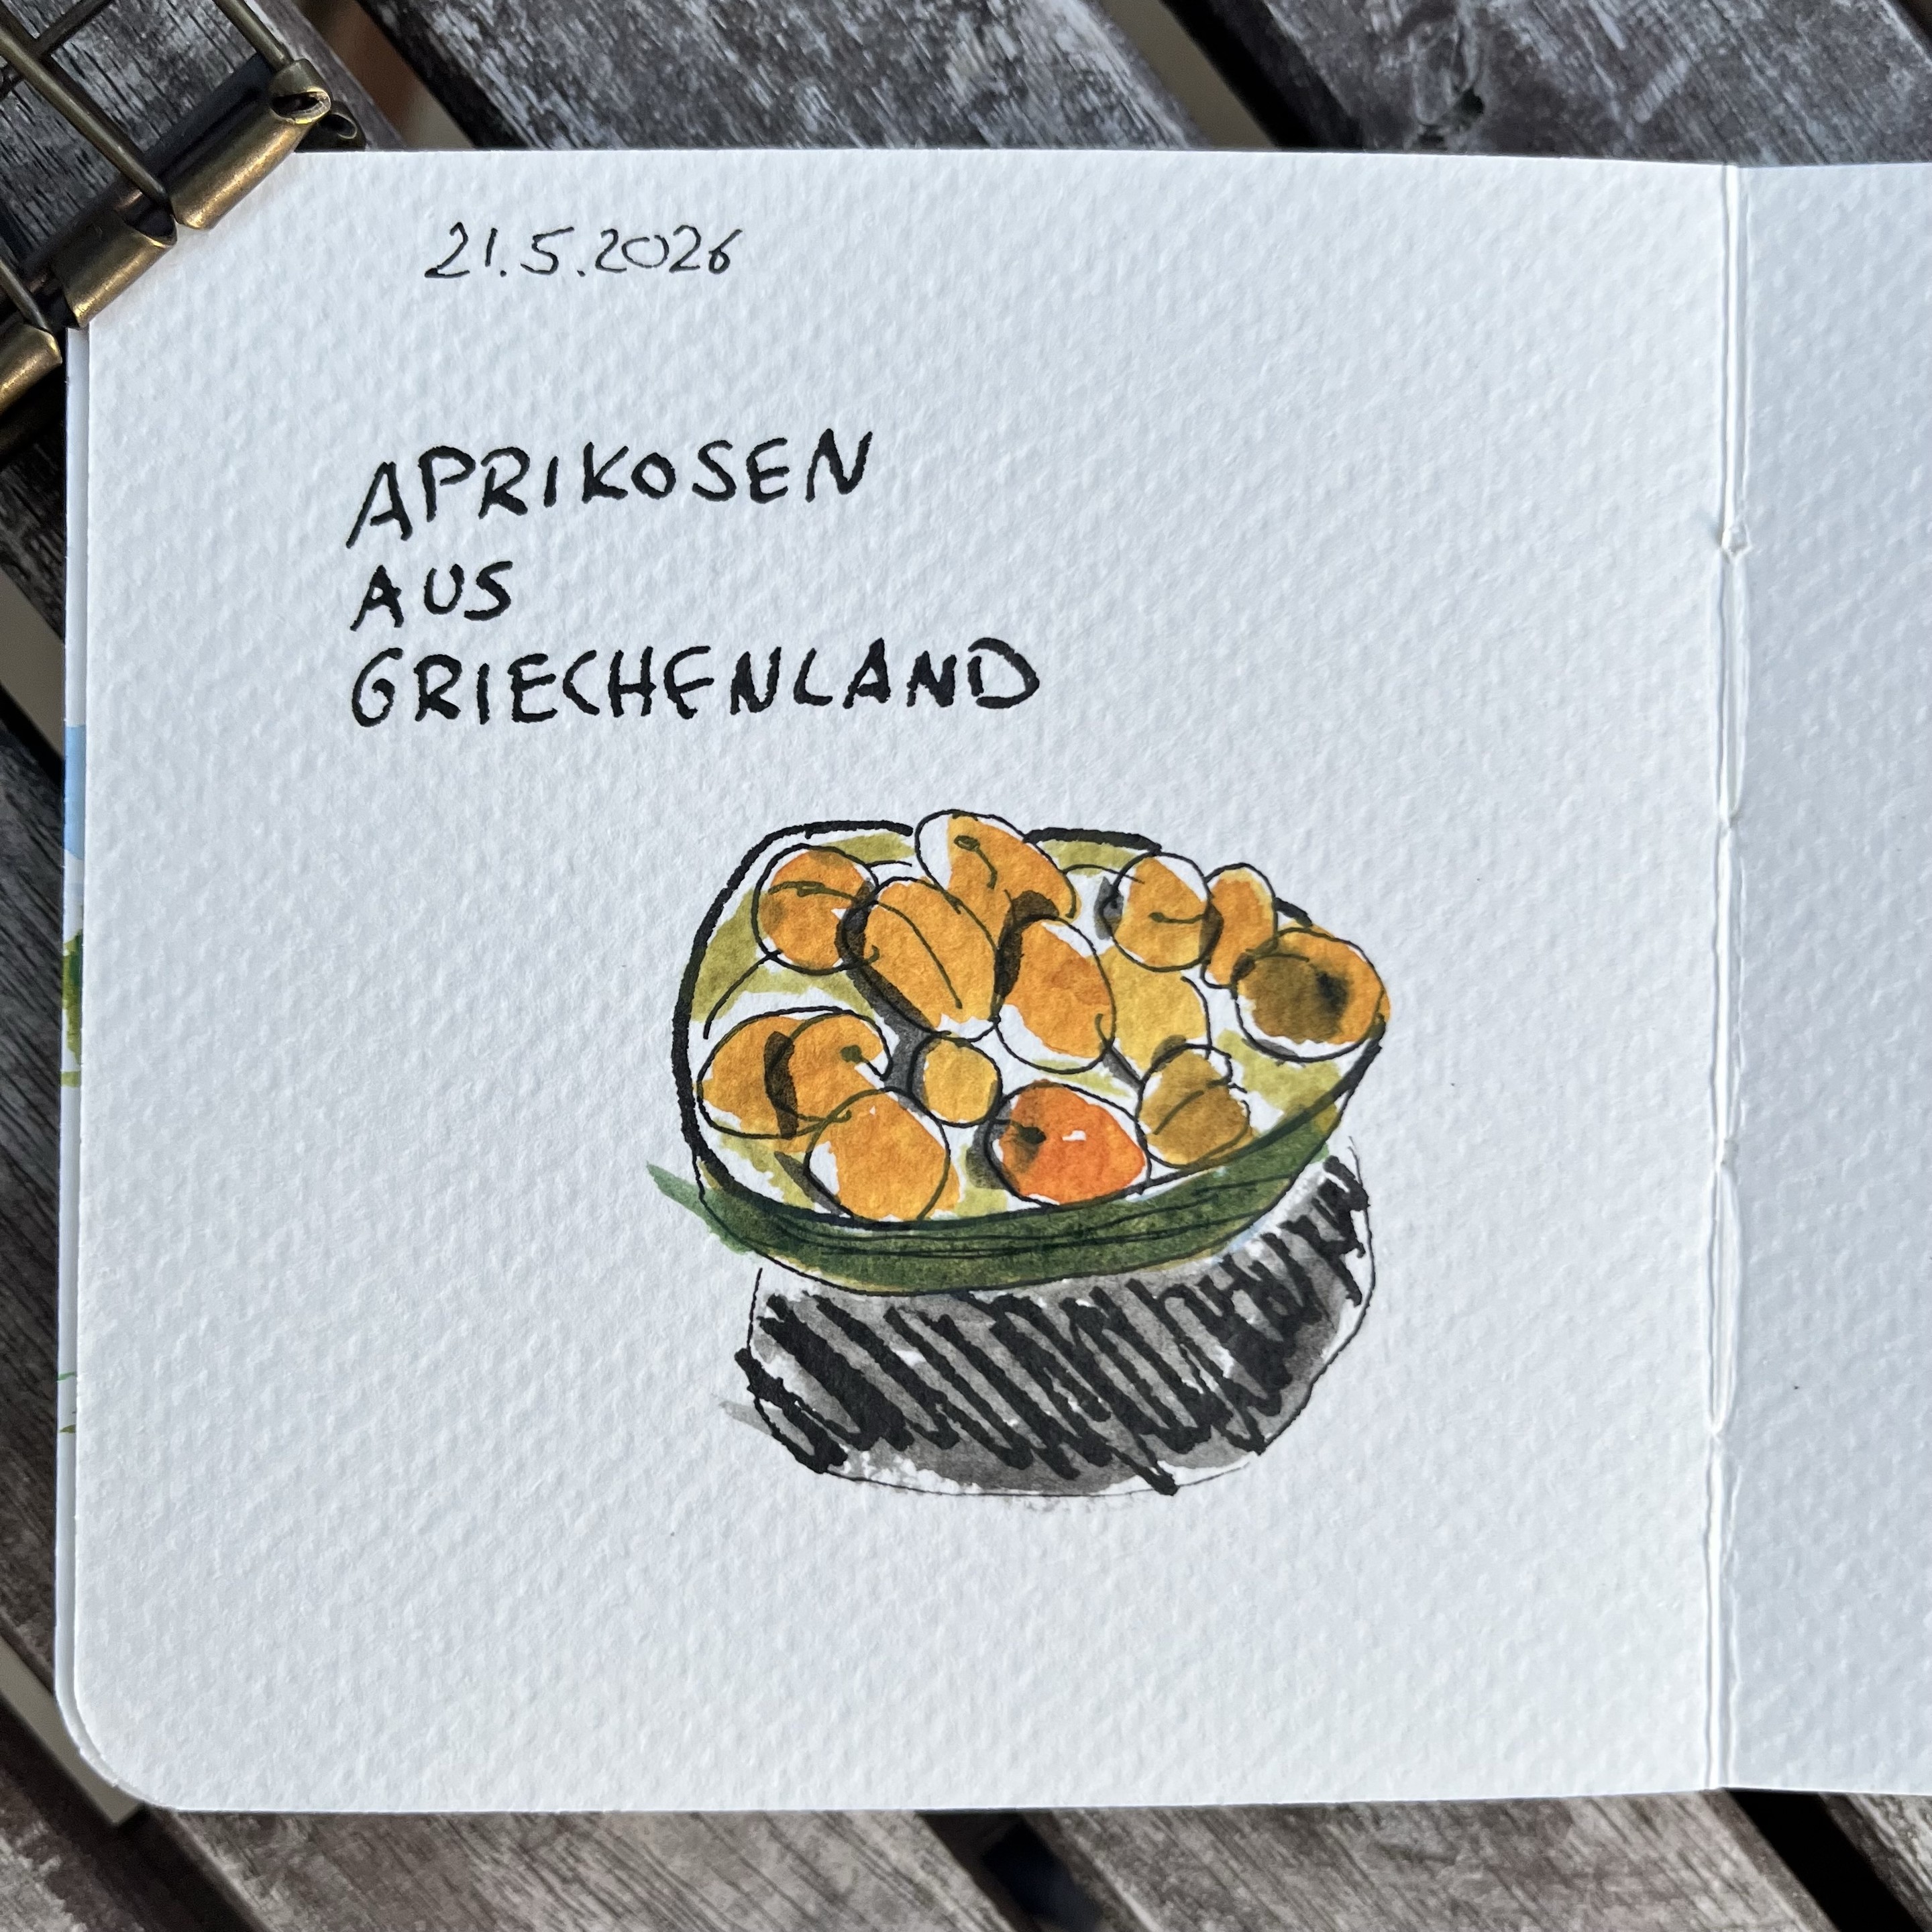 21.5.2026
APRIKOSEN
AUS
GRIECHENLAND